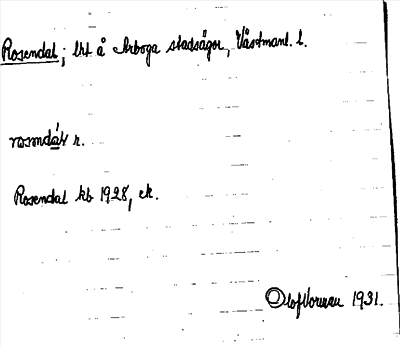 Rosendal; lht å Arboga stadsägor, Västmanl. l.
r.
Rosendal kb 1928, ek.
Olof 1931.